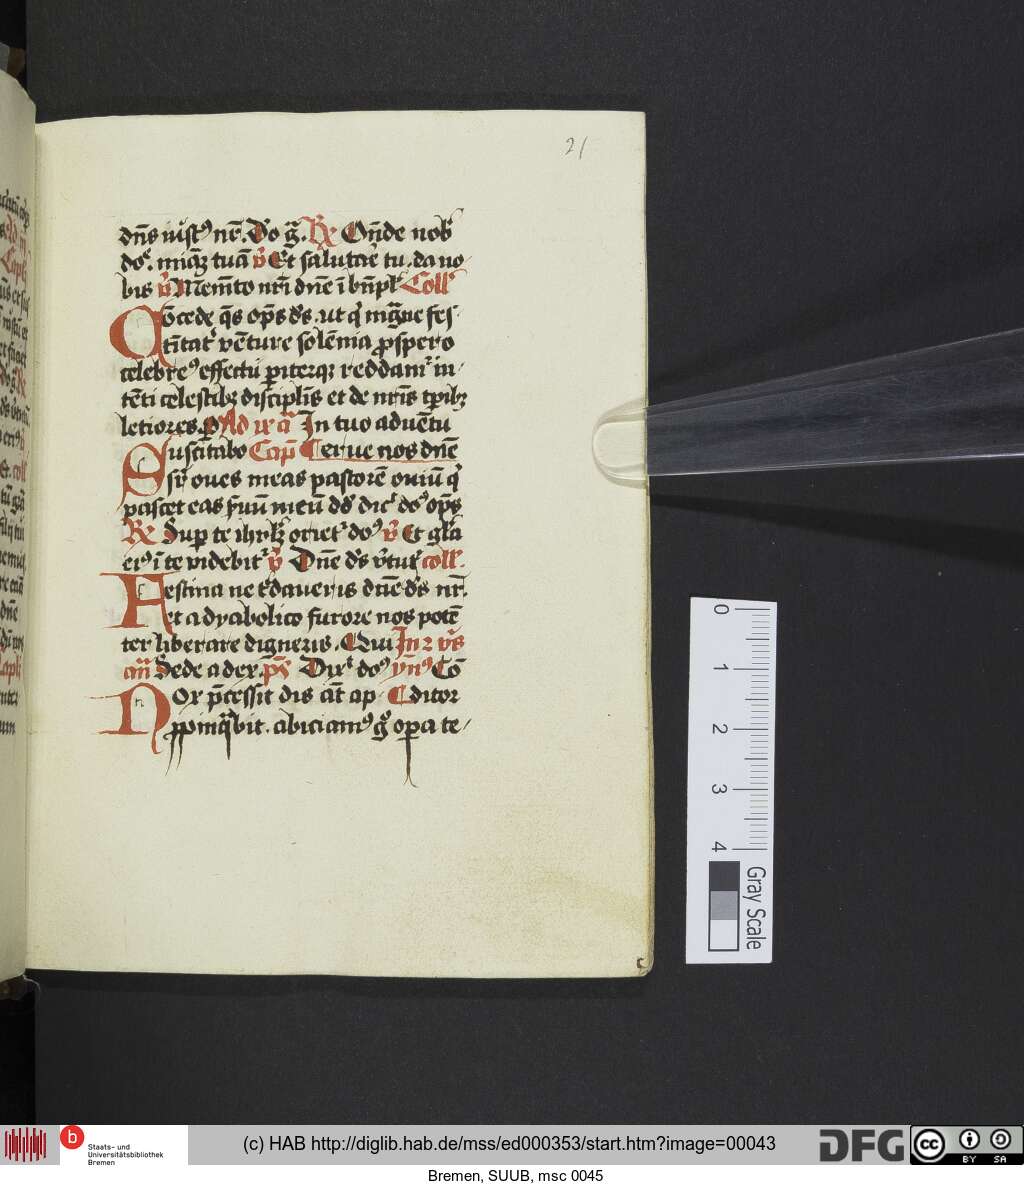 21
dn̄s iust⁹ nr̄. Do gr̄a. R On̄de nob̄
do. mīaʒ tuā v̄ Et salutar̄e tu. da no
bis v̄ Mem̄to nr̄i dn̄e ī bn̄pl Coll
Cōcede q̄s op̄s ds̄. ut q̄ mag̅ne fes-
tītat' vēture solēnia ꝓspero
celebre⁹ effectu ꝑiterqz reddam' in-
tēti celestibz discipl̄is et de nr̄is tꝑibz
letiores. ꝑ Ad ix a In tuo aduētu
Suscitabo Cap̄ Cerue nos dn̄e
sīr oues meas pastorē ouiū q̄
pascet eas s̄uū meū dd̄ dic' do⁹ op̄s
R Sup te ihrlʒ oriet' do⁹ v̄ Et glā
ei⁹ ī te videbit' v̄ Dn̄e ds̄ v̄tut coll
Festina ne t'daueris dn̄e ds̄ nr̄.
et a dyabolico furore nos potē
ter liberare digneris. Qui In 2 vr̄s
an̄ Sede a dex. ps̄ Dix' do⁹ ym̄⁹ Cō
Nox p̄cessit dis aū ap Cditor
ꝓpinq̄bit. abiciam⁹ g̊ oꝑa te-
0
1
2
3
4
Gray Scale
b Staats- und
Universitätsbibliothek
Bremen
(c) HAB http://diglib.hab.de/mss/ed000353/start.htm?image=00043
DFG
cc
BY SA
Bremen, SUUB, msc 0045